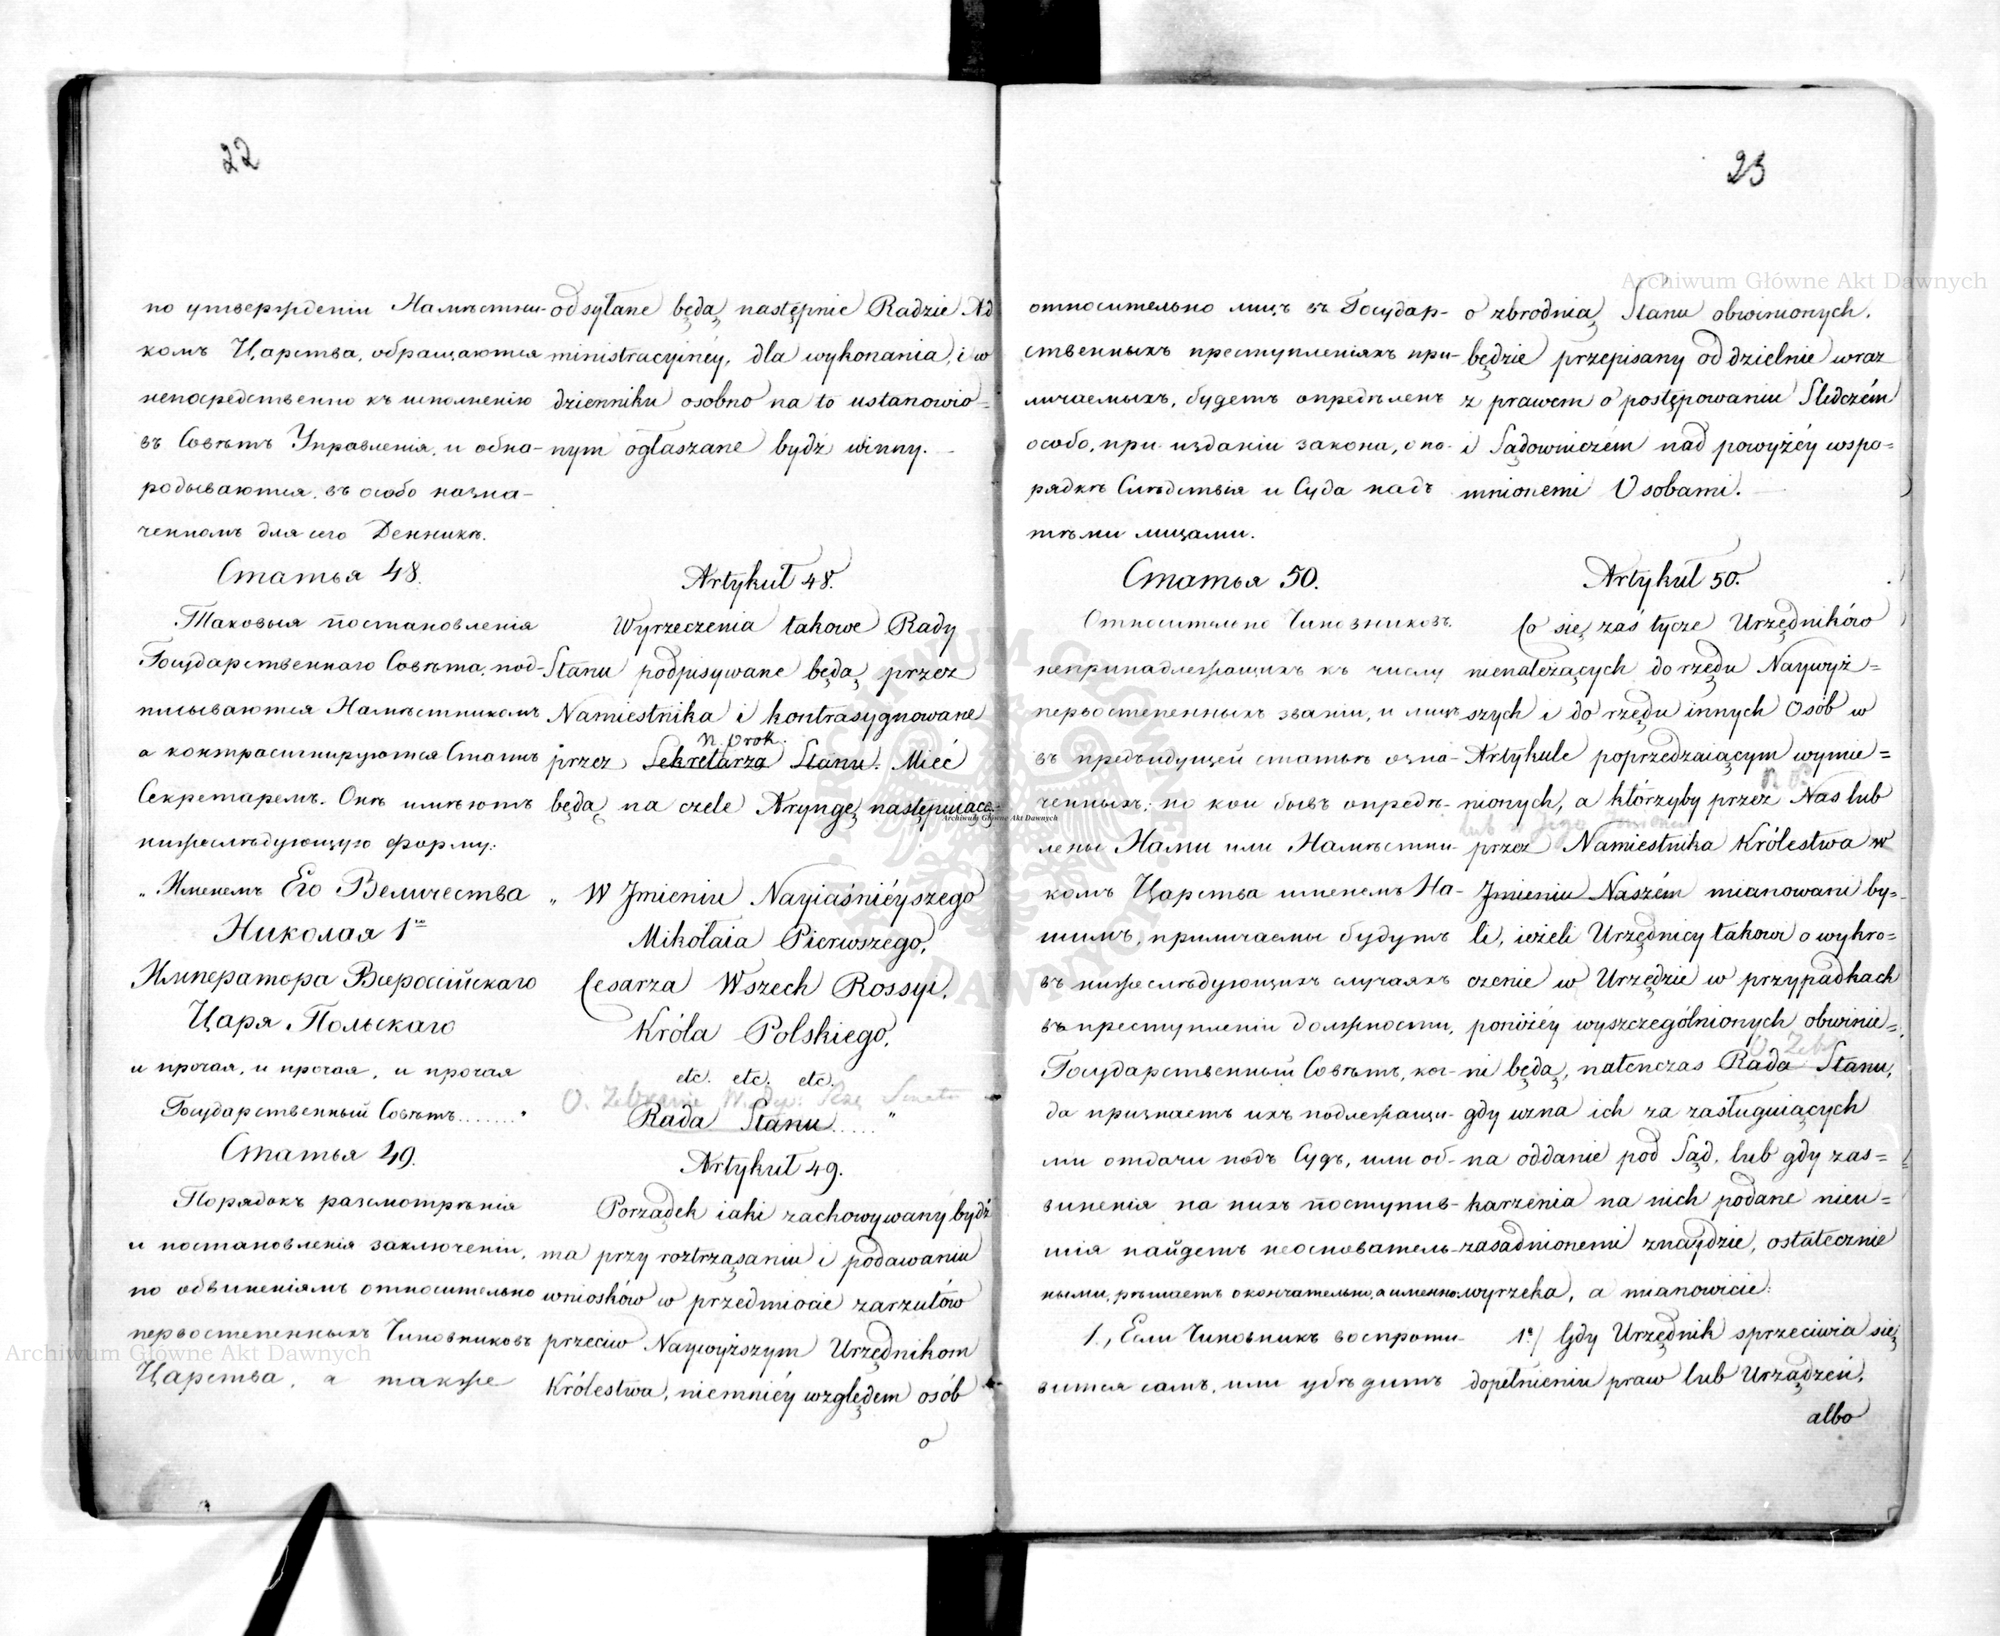 22
по утвержденіи Намѣстни-
комъ Царства, обращаются
непосредственно къ исполненію
въ Совѣтъ Управленія, и обна-
родываются, въ особо назна-
ченномъ для сего Денникѣ.
Статья 48.
Таковыя постановленія
Государственнаго Совѣта, под-
писываются Намѣстникомъ
а контрасигнируются Статсъ
Секретаремъ. Онѣ имѣютъ
нижеслѣдующую форму:
„Именемъ Его Величества
Николая 1го
Императора Всероссійскаго
Царя Польскаго
и прочая, и прочая, и прочая
Государственный Совѣтъ......."
Статья 49.
Порядокъ разсмотрѣнія
и постановленія заключеній,
по обвиненіямъ относительно
первостепенныхъ Чиновниковъ
Царства, а также
odsyłane będą następnie Radzie Ad
ministracyinéy, dla wykonania, i w
dzienniku osobno na to ustanowio=
nym ogłaszane bydź winny.
Artykuł 48.
Wyrzeczenia takowe Rady
Stanu podpisywane będą przez
Namiestnika i kontrasygnowane
n. Prok.
przez Sekretarza Stanu. Mieć
będą na czele Aryngę następuiącą:
„W Jmieniu Nayiaśnieyszego
Mikołaia Pierwszego,
Cesarza Wszech Rossyi,
Króla Polskiego,
etc. etc. etc.
O. Zebranie W. Dep: Rzą Senatu
Rada Stanu....."
Artykuł 49.
Porządek iaki zachowywany bydź
ma przy roztrząsaniu i podawaniu
wniosków w przedmiocie zarzutów
przeciw Naywyższym Urzędnikom
Królestwa, niemniéy względem osób
o
23
относительно лицъ въ Государ-
ственныхъ преступленіяхъ при-
личаемыхъ, будетъ опредѣленъ
особо, при изданіи закона, о по-
рядкѣ Слѣдствія и Суда надъ
тѣми лицами.
Статья 50.
Относительно Чиновниковъ
непринадлежащихъ къ числу
первостепенныхъ званій, и лицъ
въ предъидущей статьѣ озна-
ченныхъ; но кои бывъ опредѣ-
лены Нами или Намѣстни-
комъ Царства именемъ На-
шимъ, приличаемы будутъ
въ нижеслѣдующихъ случаяхъ
въ преступленіи должности,
Государственный Совѣтъ, ког-
да признаетъ ихъ подлежащи-
ми отдачи подъ Судъ, или об-
виненія на нихъ поступив-
шія найдетъ неосновательными,
рѣшаетъ окончательно, а именно:
1., Если Чиновникъ воспроти-
вится самъ, или убѣдитъ
o zbrodnią Stanu obwinionych,
będzie przepisany oddzielnie wraz
z prawem o postępowaniu Sledczém
i Sądowniczém nad powyżéy wspo=
mnionemi Osobami.
Artykuł 50.
Co się zaś tycze Urzędników
nienależących do rzędu Naywyż=
szych i do rzędu innych Osób w
Artykule poprzedzaiącym wymie=
nionych, a którzyby przez Nas lub
przez Namiestnika Królestwa w
Jmieniu Naszém mianowani by=
li, ieżeli Urzędnicy takowi o wykro=
czenie w Urzędzie w przypadkach
poniżéy wyszczególnionych obwinie=
O. Zeb
ni będą, natenczas Rada Stanu,
gdy uzna ich za zasługuiących
na oddanie pod Sąd, lub gdy zas=
karżenia na nich podane nieu=
zasadnionemi znaydzie, ostatecznie
wyrzeka, a mianowicie:
1e/ Gdy Urzędnik sprzeciwia się
dopełnieniu praw lub Urządzeń,
albo
Archiwum Główne Akt Dawnych
Archiwum Główne Akt Dawnych
Archiwum Główne Akt Dawnych